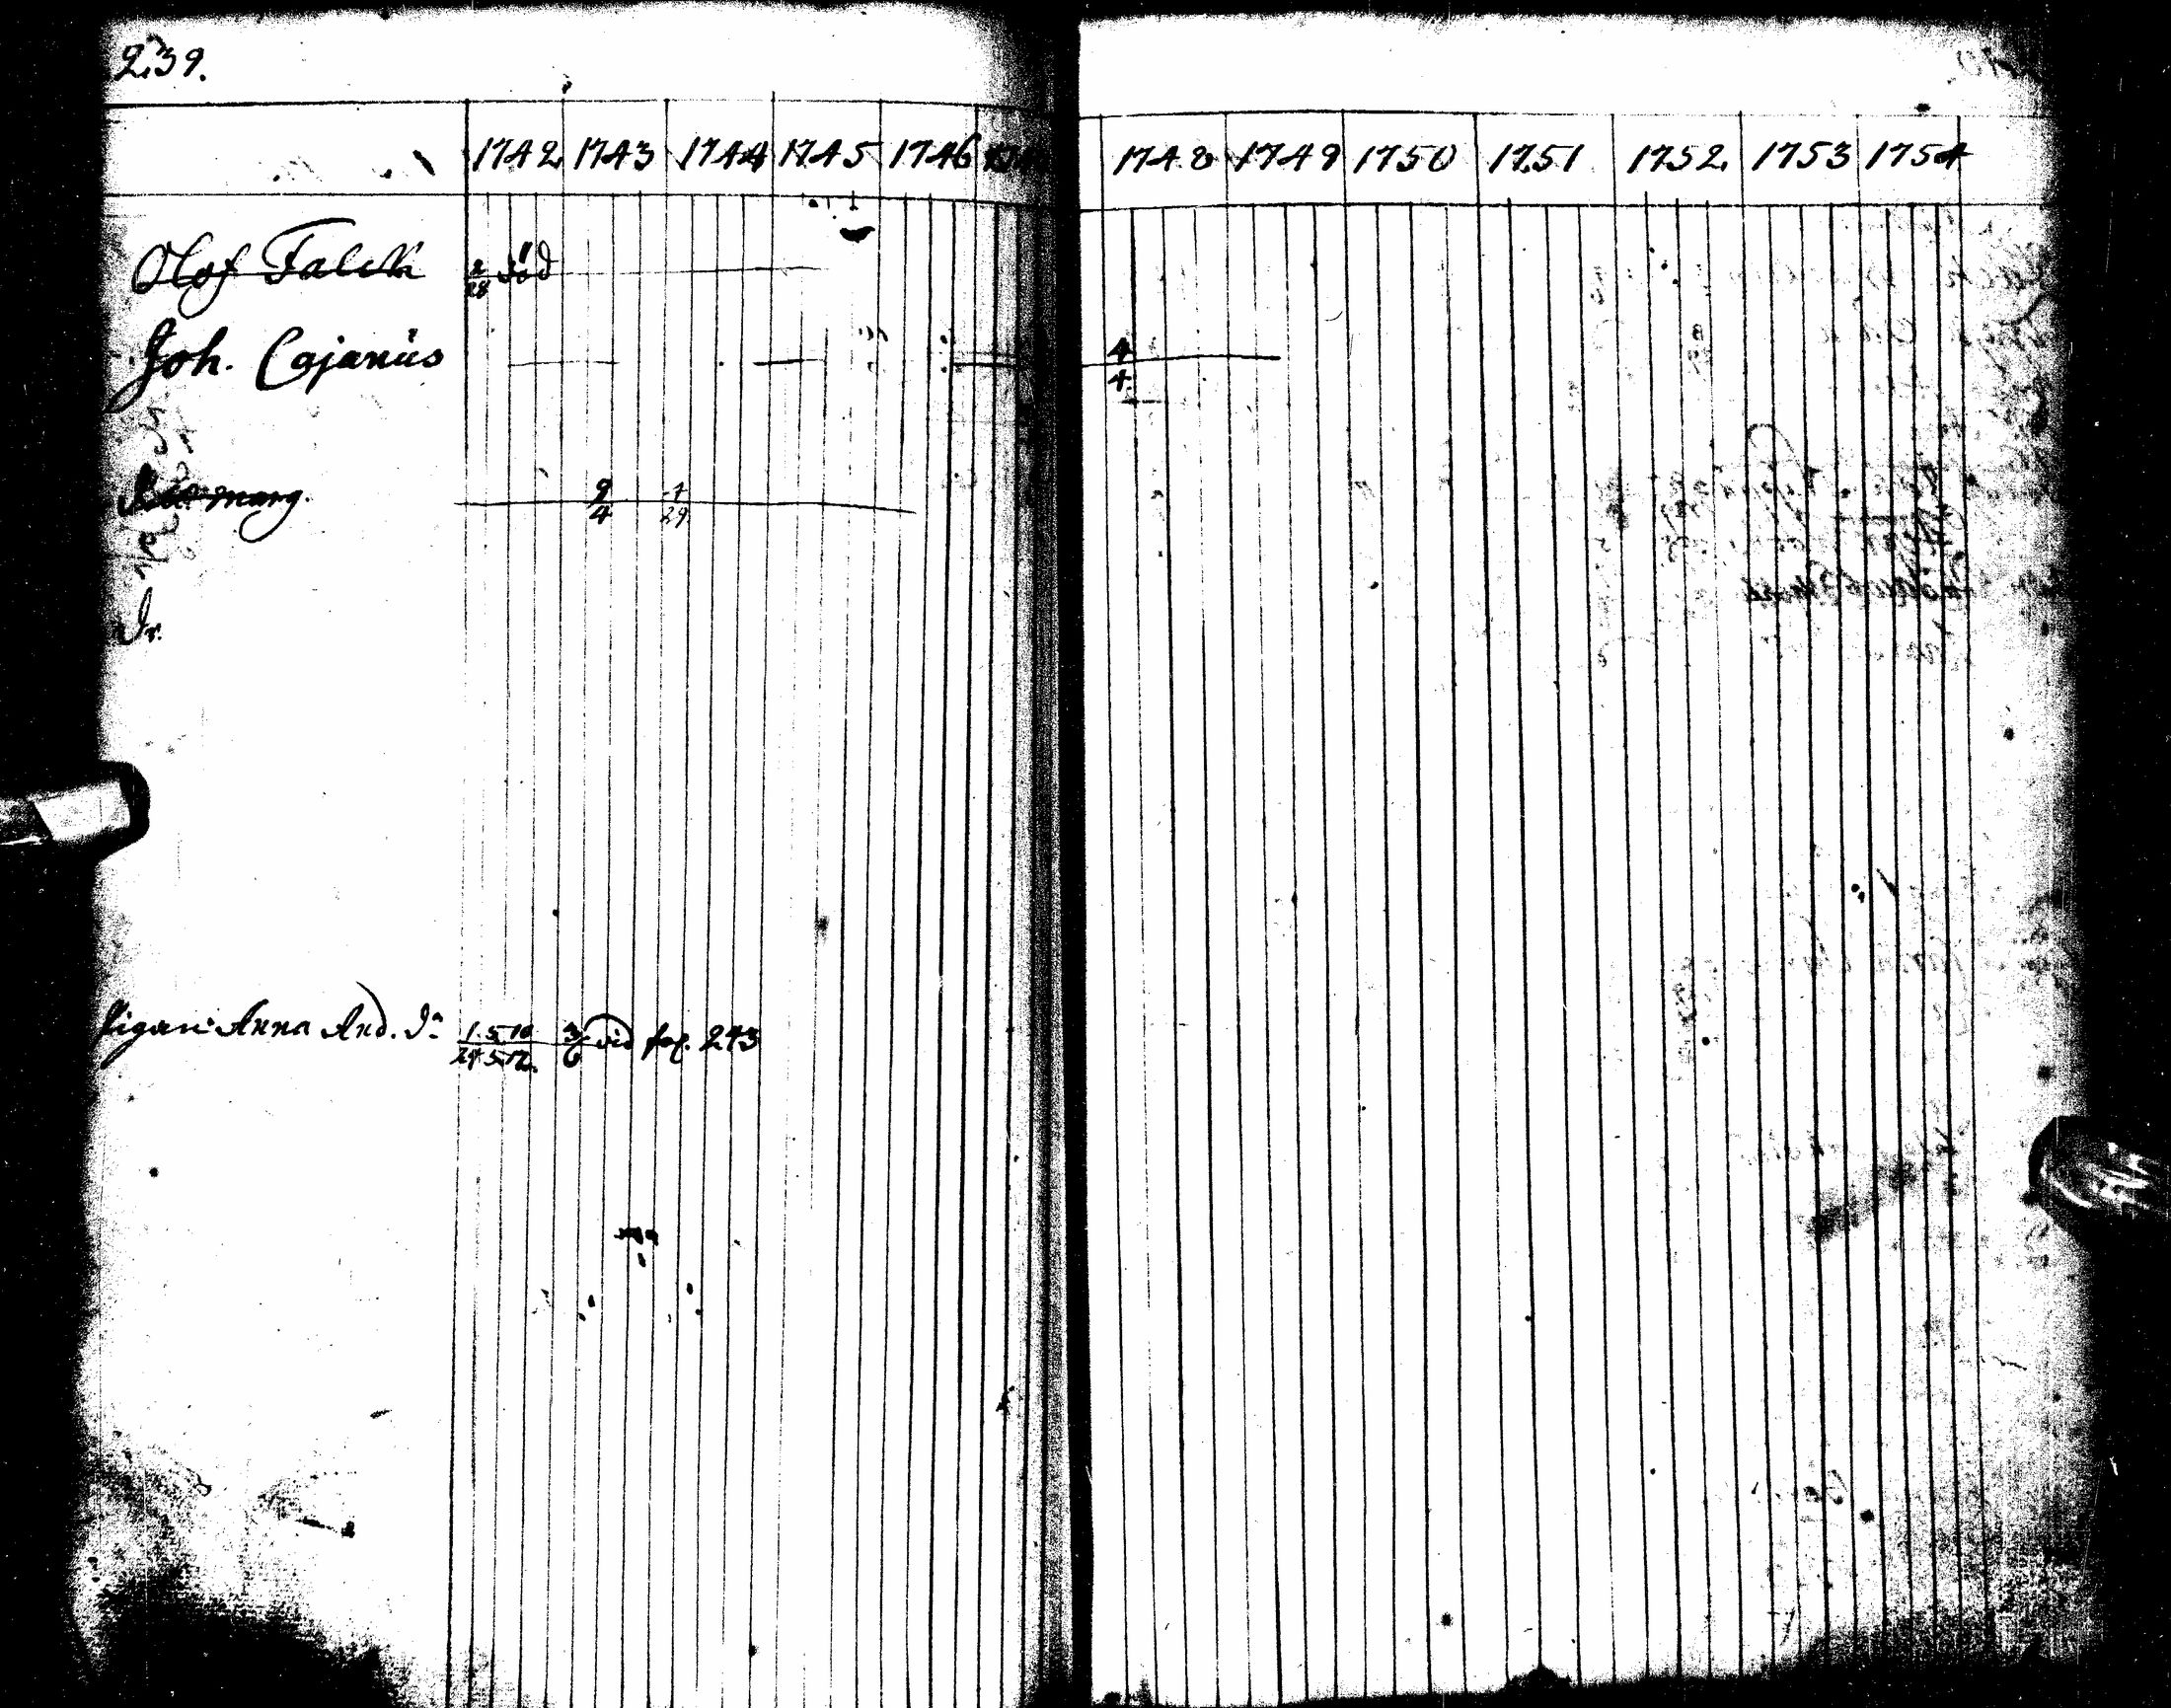 239.
1742 1743 1744 1745 1746
1748 1749 1750 1751 1752 1753 1754
Olof Falck 2/28 död
Joh. Cajanüs 4/4
marg. 9/4 1/29
Dr.
Pigan Anna And. Dr 1. 5. 10 / 24 5 12. 3/6 vid fol. 243